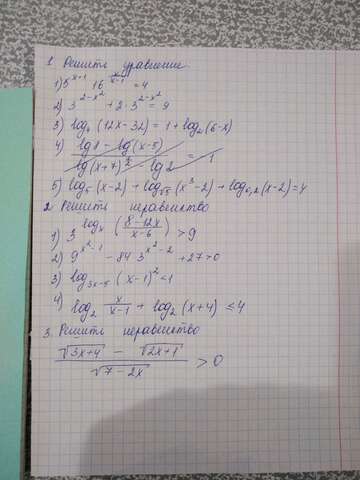 1. Решить уравнение.
1) 5^(x-1) 16^(x/(x-1)) = 4
2) 3^(2-x²) + 2·3^(2-x²) = 9
3) log₄(12x-32) = 1 + log₂(6-x)
4) (lg 8 - lg(x-5)) / (lg(x+7)² - lg 2) = -1
5) log₅(x-2) + log_√5(x³-2) + log₀,₂(x-2) = 4
2. Решить неравенство
1) 3^(log₄((8-12x)/(x-6))) > 9
2) 9^(x²-1) - 84 3^(x²-2) + 27 > 0
3) log_(3x-5)(x-1)² < 1
4) log₂ x/(x-1) + log₂(x+4) ≤ 4
3. Решить неравенство
(√(3x+4) - √(2x+1)) / √(7-2x) > 0